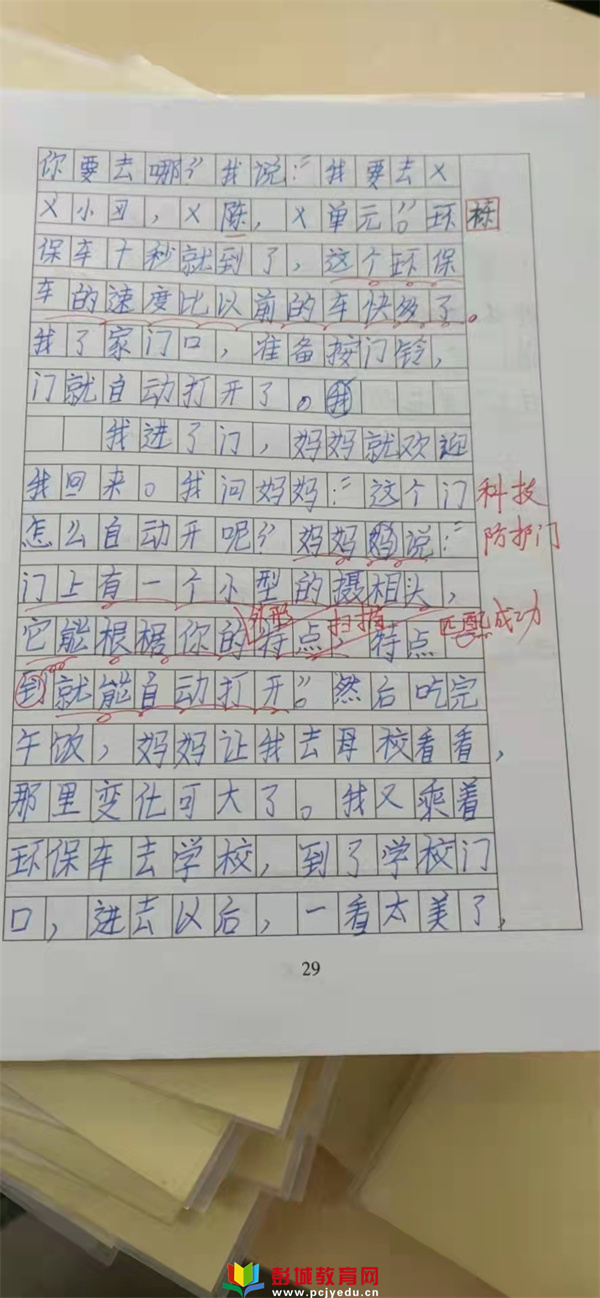 你要去哪？”我说：“我要去X
X小区，X陈，X单元。”环
栋
保车十秒就到了，这个环保
车的速度比以前的车快多了。
我了家门口，准备按门铃，
门就自动打开了。我
我进了门，妈妈就欢迎
我回来。我问妈妈：“这个门
科技
怎么自动开呢？”妈妈妈说：“
防护门
门上有一个小型的摄相头，
它能根据你的特点，特点
外形 扫描 匹配成功
到就能自动打开。”然后吃完
午饭，妈妈让我去母校看看，
那里变化可大了。我又乘着
环保车去学校，到了学校门
口，进去以后，一看太美了，
29
彭城教育网
www.pcjyedu.cn